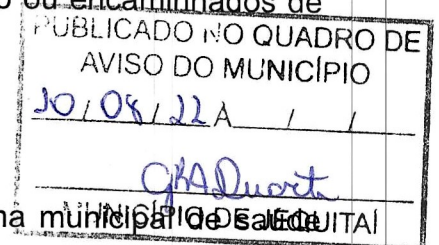 o ou encaminhados de
PUBLICADO NO QUADRO DE
AVISO DO MUNICÍPIO
10/08/22 A / /
GKADuarte
MUNICÍPIO DE JEQUITAÍ
ma municipal de saúde